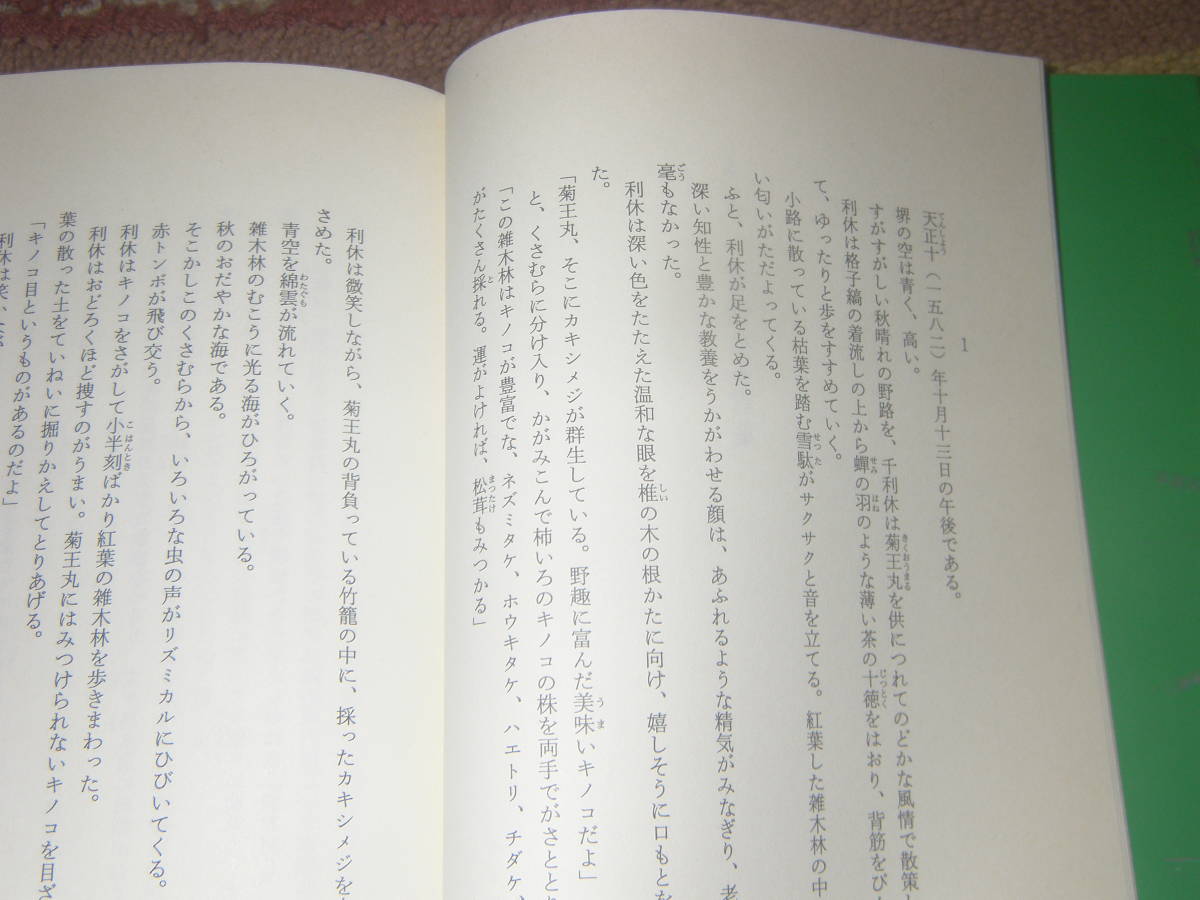 1
天正十（一五八二）年十月十三日の午後である。
堺の空は青く、高い。
すがすがしい秋晴れの野路を、千利休は菊王丸を供につれてのどかな風情で散策
利休は格子縞の着流しの上から蟬の羽のような薄い茶の十徳をはおり、背筋をぴ
て、ゆったりと歩をすすめていく。
小路に散っている枯葉を踏む雪駄がサクサクと音を立てる。紅葉した雑木林の中
い匂いがただよってくる。
ふと、利休が足をとめた。
深い知性と豊かな教養をうかがわせる顔は、あふれるような精気がみなぎり、老
毫もなかった。
利休は深い色をたたえた温和な眼を椎の木の根かたに向け、嬉しそうに口もとを
た。
「菊王丸、そこにカキシメジが群生している。野趣に富んだ美味いキノコだよ」
と、くさむらに分け入り、かがみこんで柿いろのキノコの株を両手でがさとと
「この雑木林はキノコが豊富でな、ネズミタケ、ホウキタケ、ハエトリ、チダケ、
がたくさん採れる。運がよければ、松茸もみつかる」
利休は微笑しながら、菊王丸の背負っている竹籠の中に、採ったカキシメジを
さめた。
青空を綿雲が流れていく。
雑木林のむこうに光る海がひろがっている。
秋のおだやかな海である。
そこかしこのくさむらから、いろいろな虫の声がリズミカルにひびいてくる。
赤トンボが飛び交う。
利休はキノコをさがして小半刻ばかり紅葉の雑木林を歩きまわった。
利休はおどろくほど捜すのがうまい。菊王丸にはみつけられないキノコを目ざ
葉の散った土をていねいに掘りかえしてとりあげる。
「キノコ目というものがあるのだよ」
利休は笑